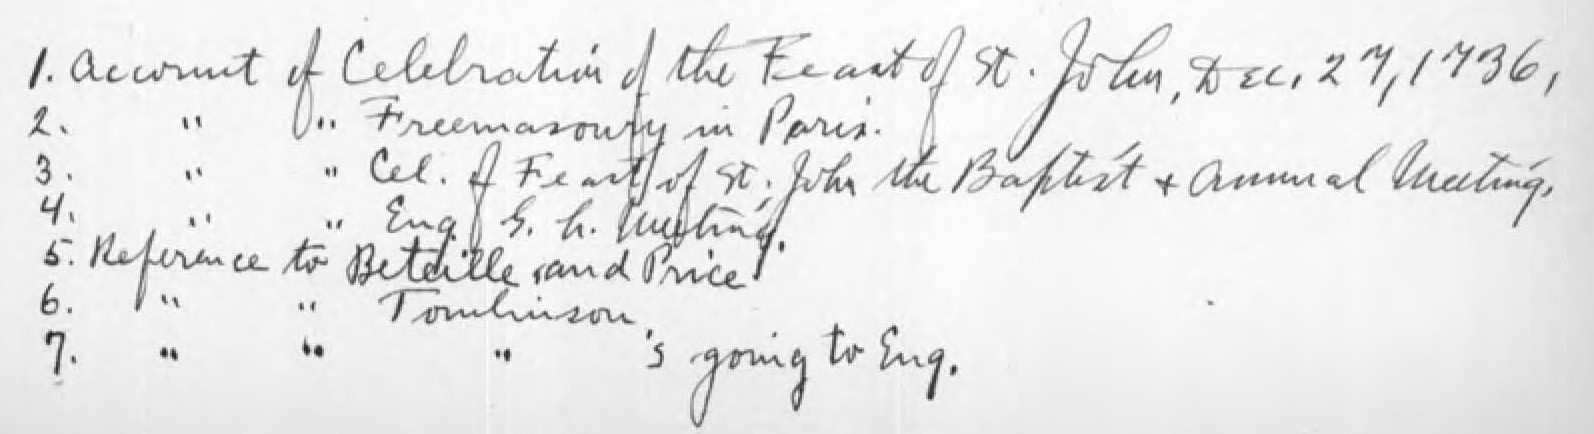 1. Account of Celebration of the Feast of St. John, Dec. 27, 1736,
2. " " Freemasonry in Paris.
3. " " Cel. of Feast of St. John the Baptist + Annual Meeting.
4. " " Eng G. L. Meeting.
5. Reference to Beteille and Price
6. " " Tomlinson.
7. " " " 's going to Eng.